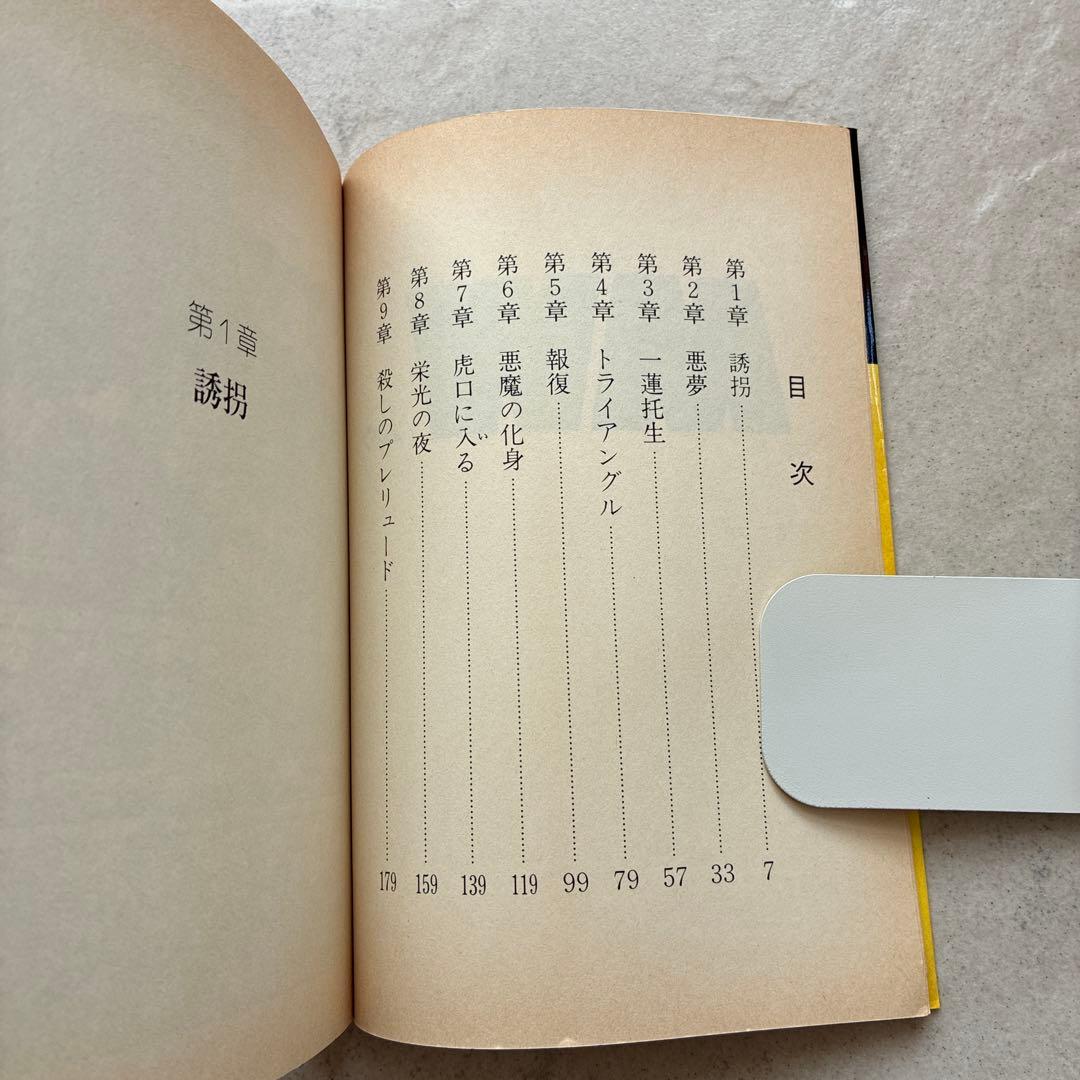 目次
第1章 誘拐……7
第2章 悪夢……33
第3章 一蓮托生……57
第4章 トライアングル……79
第5章 報復……99
第6章 悪魔の化身……119
第7章 虎口に入る……139
い
第8章 栄光の夜……159
第9章 殺しのプレリュード……179
第1章
誘拐